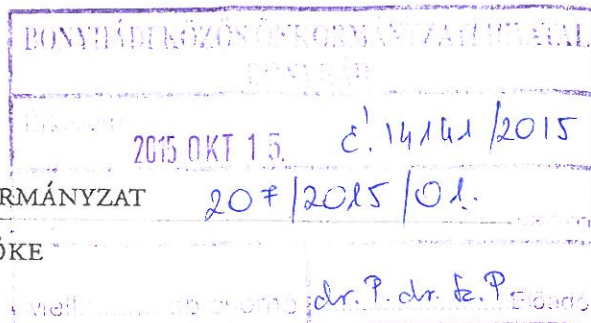 BONYHÁDI KÖZÖS ÖNKORMÁNYZATI HIVATAL
BONYHÁD
2015 OKT 15.
É! 14141/2015
RMÁNYZAT
207/2015/01.
ŐKE
dr. P. dr. Sz. P.